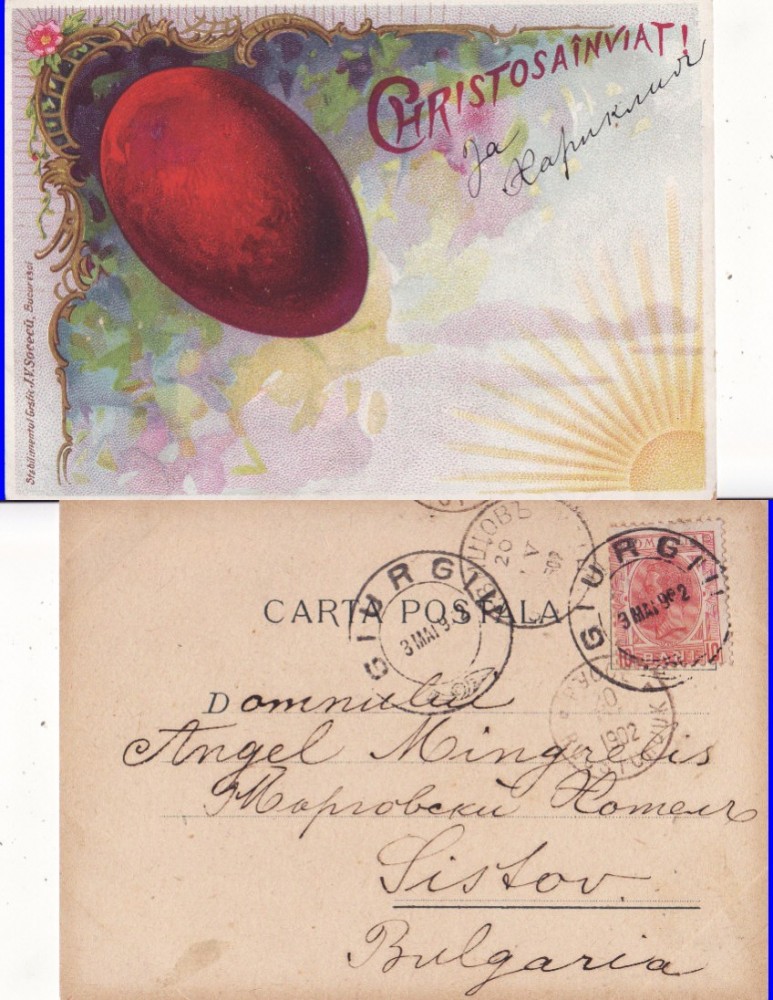 CHRISTOS A ÎNVIAT!
За Хариклия
Stabilimentul Grafic J.V.Socecŭ, Bucuresci
CARTA POSTALA
GIURGIU
3 MAI 902
GIURGIU
3 MAI 902
20
V
902
10 BANI 10
1902
RUSTCHUK
Domnului
Angel Mingrelis
Търговски Хотелъ
Sistov
Bulgaria